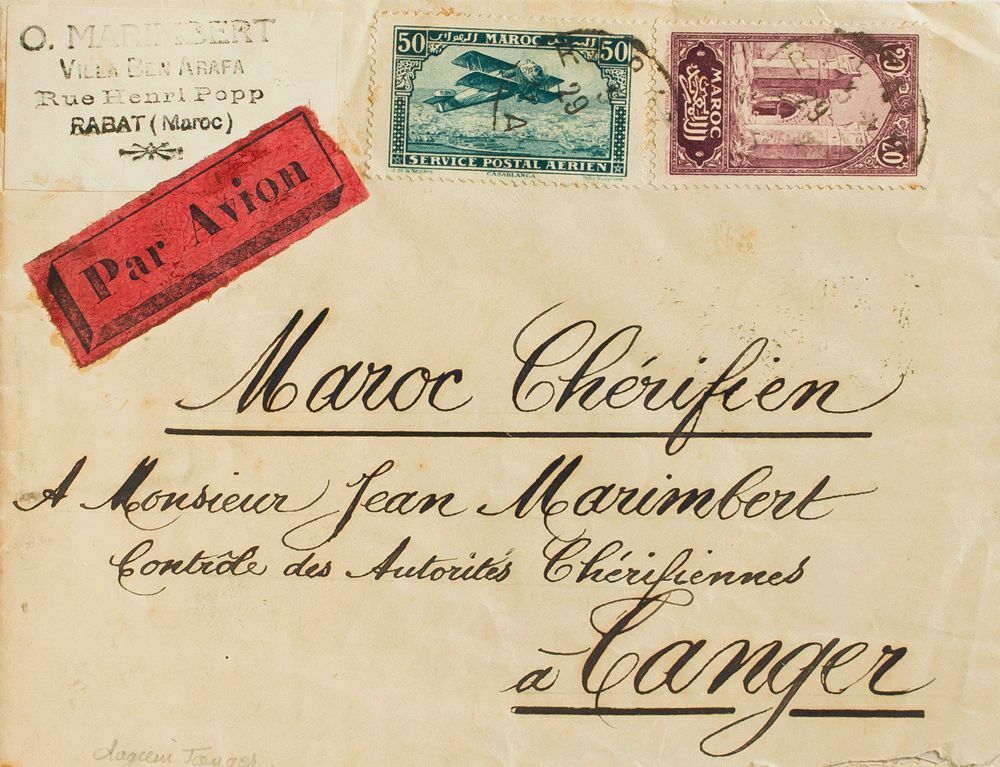 O. MARIMBERT
VILLA BEN ARAFA
Rue Henri Popp
RABAT (Maroc)
Par Avion
50 MAROC 50
SERVICE POSTAL AERIEN
CASABLANCA
29
A
20 20
MAROC
20
29
Maroc Chérifien
A Monsieur Jean Marimbert
Contrôle des Autorités Chérifiennes
à Tanger
Tanger